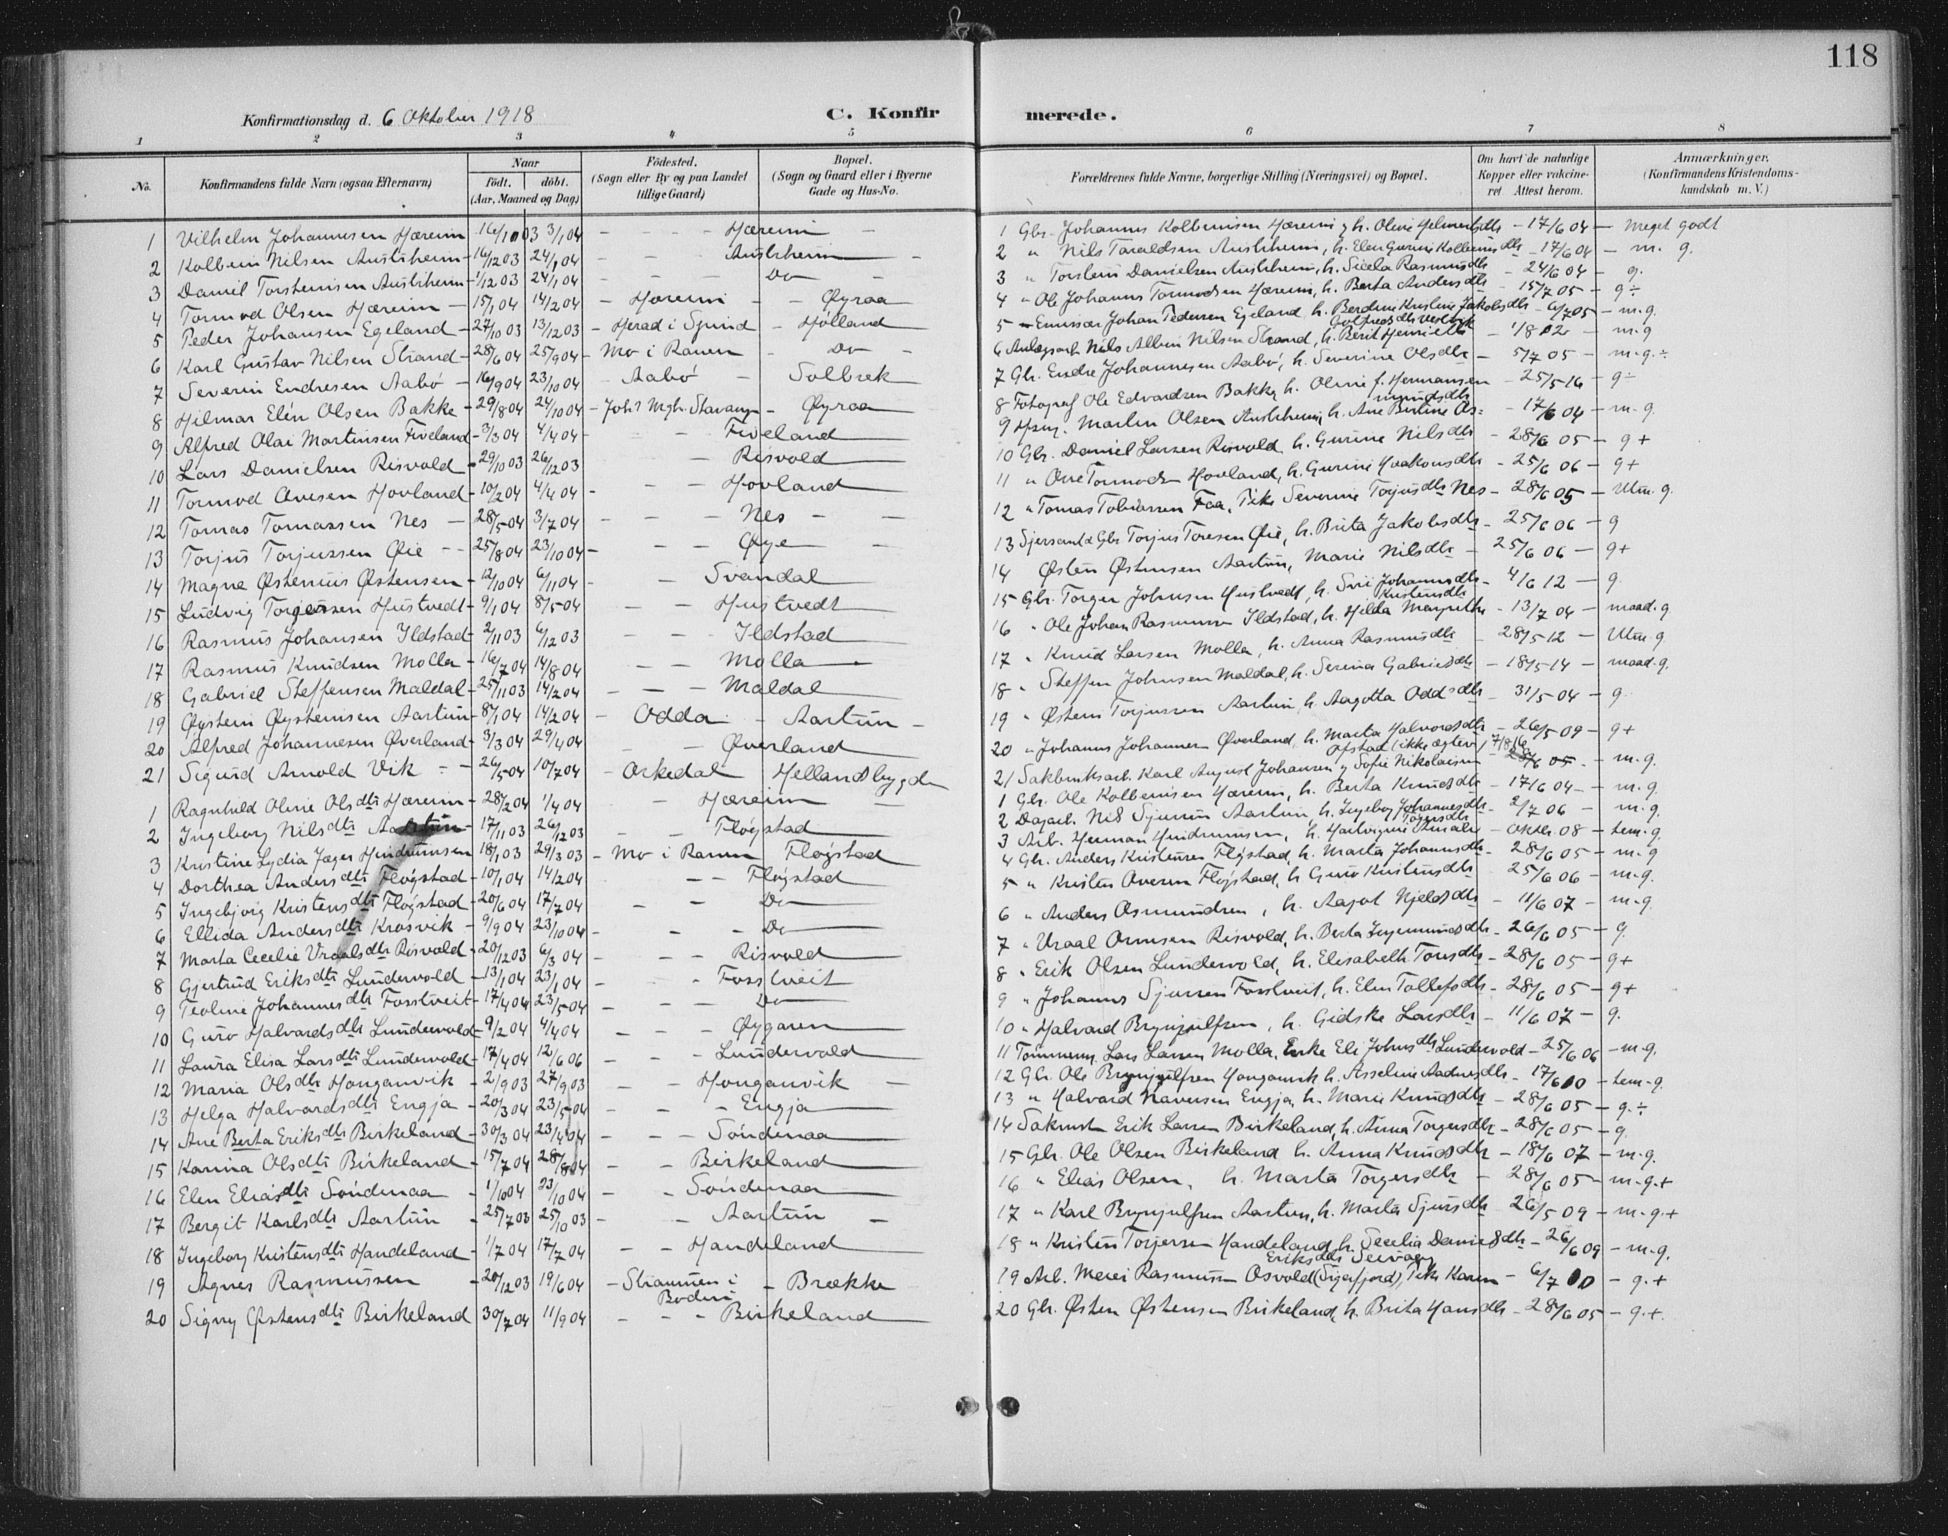 118
Konfirmationsdag d. 6 Oktober 1918
C. Konfirmerede.
1 2 3 4 5 6 7 8
No.
Konfirmandens fulde Navn (ogsaa Efternavn)
Naar
födt. döbt.
(Aar, Maaned og Dag)
Födested.
(Sogn eller By og paa Landet
tillige Gaard)
Bopæl.
(Sogn og Gaard eller i Byerne
Gade og Hus-No.
Forældrenes fulde Navne, borgerlige Stilling (Næringsvei) og Bopæl.
Om havt de naturlige
Kopper eller vakcine-
ret. Attest herom.
Anmærkninger.
(Konfirmandens Kristendoms-
kundskab m. V.)
1 Vilhelm Johannesen Hæreim 16/10 03 3/1 04 - - - Hæreim - 1 Gbr. Johannes Kolbeinsen Hæreim - 17/6 04 - Meget godt
2 Kolbein Nilsen Austrheim 16/12 03 24/1 04 - - - Austrheim - 2 " Nils Taraldsen Austrheim, h. Elen Gurine Kolbeinsdtr - 17/6 04 - m. g.
3 Daniel Torsteinsen Austrheim 1/12 03 24/1 04 - - - Do - 3 " Torstein Danielsen Austrheim, h. Rasmusdtr - 24/6 04 - g.
4 Tormod Olsen Hæreim 15/1 04 14/2 04 - Hæreim - Øyraa 4 " Ole Johannes Tormodsen Hæreim, h. Berta Andersdtr - 15/7 05 - g÷
5 Peder Johansen Egeland 27/10 03 13/12 03 - Herad i - Hölland 5 Emissær Johan Pedersen Egeland h. Berdine Kristine Jakobsdtr - 6/7 05 - m.g.
6 Karl Gustav Nilsen Strand 28/6 04 25/9 04 - Mo i Ranen - Do - 6 Nils Albin Nilsen Strand, h. Berit Henriette - 1/8 12 - m.g
7 Severin Endresen Aabö 16/9 04 23/10 04 - Aabö - Solbrek 7 Gbr. Endre Johannesen Aabö, h. Severine Olsdtr - 5/7 05 - m.g.÷
8 Hilmar Elén Olsen Bakke 29/8 04 24/10 04 - Øyraa 8 Fotograf Ole Edvardsen Bakke, h. Oline f. Hermansen - 25/5 16 - g÷
9 Alfred Olai Martinsen Fiveland 3/3 04 4/4 04 - - Fiveland 9 Martin Olsen Austrheim, h. Ane - 17/6 04 - m.g.
10 Lars Danielsen Risvold 29/10 03 26/12 03 - - Risvold 10 Gbr. Daniel Larsen Risvold h. Gurine Nilsdtr - 28/6 05 - g+
11 Tormod Ovesen Hovland 10/2 04 4/4 04 - - Hovland 11 " Ove Tormodsen Hovland, h. Gurine Haakonsdtr - 25/6 06 - g+
12 Tomas Tomassen Nes 28/5 04 3/7 04 - - Nes - 12 " Tomas Tobiassen Faa, Pike Severine Torjusdtr Nes - 28/6 05 - Utm. g.
13 Torjus Torjussen Øie 25/8 04 23/10 04 - - Øye - 13 Gbr Torjus Toresen Øie, h. Brita Jakobsdtr - 25/6 06 - g
14 Magne Østenius Østensen 12/10 04 6/11 04 - - Svandal 14 Østen Østensen Aartun, Marie Nilsdtr - 25/6 06 - g+
15 Ludvig Torgersen Hustvedt 9/1 04 8/5 04 - - Hustvedt 15 Gbr. Torger Johnsen Hustvedt, h. Siri Johannesdtr - 4/6 12 - g.
16 Rasmus Johansen Ildstad 2/11 03 6/12 03 - - Ildstad 16 " Ole Johan Rasmussen Ildstad, h. Helda Margrethe Kristensdtr - 13/7 04 - maad. g
17 Rasmus Knudsen Molla 16/7 04 14/8 04 - - Molla 17 " Knud Larsen Molla, h. Anna Rasmusdtr - 28/5 12 - Utm. g
18 Gabriel Steffensen Maldal 25/11 03 14/2 04 - - Maldal 18 " Steffen Johnsen Maldal, h. Serina Gabrielsdtr - 18/5 14 - maad. g.
19 Øystein Øysteinsen Aartun 8/1 04 14/2 04 - Odda - Aartun - 19 " Østein Torjussen Aartun, h. Aagotta Oddsdtr - 31/5 04 - g
20 Alfred Johannesen Øverland 3/3 04 29/4 04 - - Øverland 20 " Johannes Johannesen Øverland, h. Marta Halvorsdtr - 26/5 09 - g+
21 Sigurd Arnold Vik 26/5 04 10/7 04 - Orkedal Hellandsbygde 21 Sakbruksarb. Karl August Johansen og Sofie Nikolaisen Opstad (ikke ægtev.) 7/8 16 - m.g.
1 Ragnhild Oline Olsdtr Hæreim 28/2 04 1/4 04 - Hæreim - 1 Gbr. Ole Kolbeinsen Hæreim, h. Berta Knudsdtr - 17/6 04 - m.g.
2 Ingeborg Nilsdtr Aartun 17/11 03 26/12 03 - - Fløgstad 2 Dagarb. Nils Sjursen Aartun, h. Ingeborg Johannesdtr - 2/7 06 - m.g.
3 Kristine Lydia Jæger Hindrumsen 18/1 03 29/3 03 - Mo i Ranen Fløgstad 3 Arb. Herman Hindrumsen, h. Hartvigine Amalie - Oktbr. 08 - tem. g.
4 Dorthea Andersdtr Fløgstad 10/1 04 14/2 04 - - Fløgstad 4 Gbr. Anders Kristensen Fløgstad, h. Marta Johannesdtr - 28/6 05 - m.g
5 Ingebjørg Kristensdtr Fløgstad 20/6 04 17/7 04 - - Do 5 " Kristen Ovesen Fløgstad, h. Guro Kristensdtr - 25/6 06 - m.g.
6 Ellida Andersdtr Krosvik 9/9 04 23/10 04 - - Do 6 " Anders Osmundsen, h. Aagot Kjeldsdtr - 11/6 07 - m.g.
7 Marta Cecelie Vraalsdtr Risvold 20/12 03 6/3 04 - - Risvold 7 " Vraal Ormsen Risvold, h. Berta Ingemundsdtr - 26/6 05 - g.
8 Gjertrud Eriksdtr Lundervold 13/1 04 23/1 04 - Fosstveit 8 " Erik Olsen Lundervold, h. Elisabeth Toresdtr - 28/6 05 - g+
9 Teoline Johannesdtr Fosstveit 17/4 04 23/5 04 - - Do 9 " Johannes Sjursen Fosstveit, h. Elen Tollefsdtr - 28/6 05 - g+
10 Guro Halvardsdtr Lundervold 9/2 04 4/4 04 - - Øygaren 10 " Halvard Brynjulfsen, h. Gidske Larsdtr - 11/6 07 - g.
11 Laura Elisa Larsdtr Lundervold 17/4 04 12/6 06 - - Lundervold 11 Tömmerm. Lars Larsen Molla, Enke Eli Johnsdtr Lundervold - 25/6 06 - m.g.
12 Maria Olsdtr Honganvik 2/9 03 27/9 03 - - Honganvik - 12 Gbr. Ole Brynjulfsen Honganvik h. Asseline Aadnesdtr - 17/6 10 - tem. g.
13 Helga Halvardsdtr Engja 20/3 04 23/5 04 - - Engja 13 " Halvard Engja, h. Marie Knudsdtr - 28/6 05 - g.÷
14 Ane Berta Eriksdtr Birkeland 30/3 04 23/4 04 - - Söndenaa 14 Erik Larsen Birkeland, h. Anna Torgersdtr - 28/6 05 - g.
15 Karina Olsdtr Birkeland 15/7 04 28/8 04 - - Birkeland 15 Gbr. Ole Olsen Birkeland h. Anna Knudsdtr - 18/6 07 - m.g.
16 Elen Eliasdtr Söndenaa 1/10 04 23/10 04 - - Söndenaa 16 " Elias Olsen, h. Marta Torgersdtr - 28/6 05 - m.g.+
17 Bergit Karlsdtr Aartun 25/7 03 25/10 03 - - Aartun - 17 " Karl Brynjulfsen Aartun, h. Marta Sjursdtr - 26/5 09 - m.g.+
18 Ingeborg Kristensdtr Handeland 1/7 04 17/7 04 - - Handeland 18 " Kristen Torjersen Handeland, h. Secelia Danielsdtr - 26/6 09 - m.g.
19 Agnes Rasmussen 20/12 03 19/6 04 - Straumen i Bodin - Brække 19 Arb. Merei Rasmussen Osvold (Sigerfjord), Pike Karen Eriksdtr - 6/7 10 - g.+
20 Signy Østensdtr Birkeland 30/7 04 11/9 04 - - - Birkeland 20 Gbr. Østen Østensen Birkeland, h. Brita Hansdtr - 28/6 05 - g.+